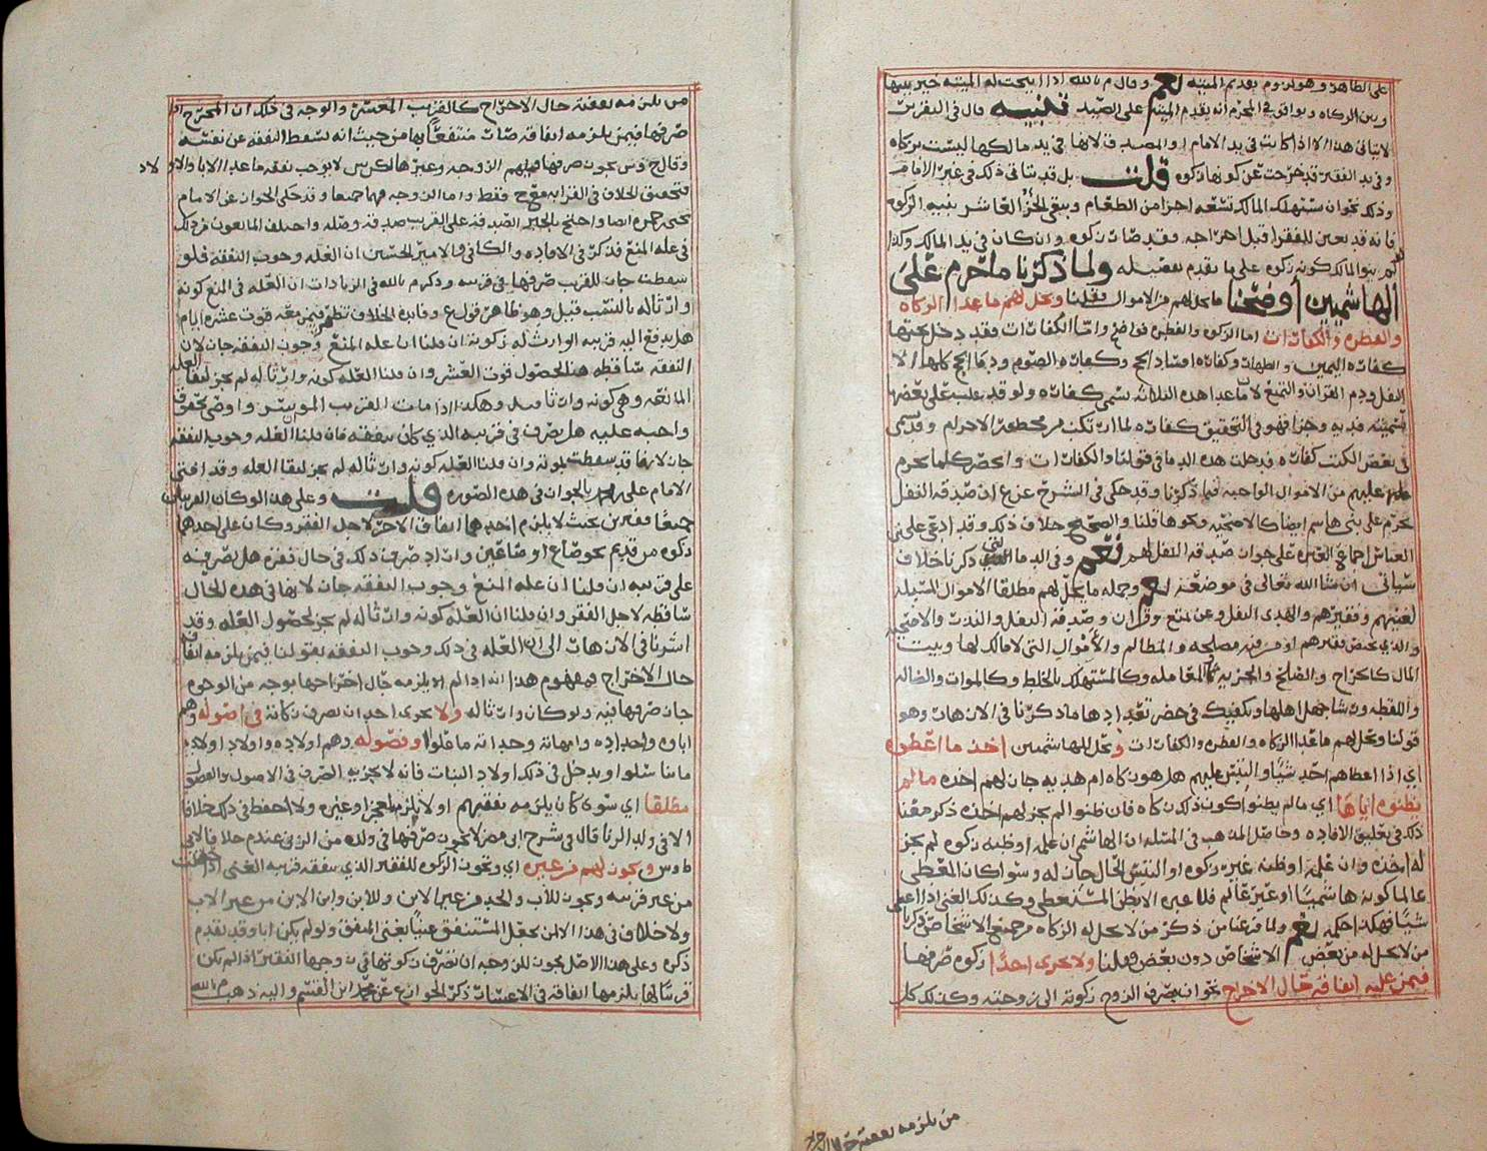 على الظاهر وهو لزوم تقديم الميته نعم وقال م بالله اذا ابيحت له الميته خير بينها
وبين الزكاه ويوافق في المحرم أنه يقدم الميته على الصيد تنبيه قال في التقرير
لا يتأتى هذا الا اذا كانت في يد الامام او المصدق لانها في يد مالكها ليست بزكاه
وفي يد الفقير قد خرجت عن كونها زكوه قلت بل قد يتأتى ذلك في غير الامام
وذلك نحو ان يستهلك المالك تسعه اجزا من الطعام ويبقى الجزؤ العاشر بنيه الزكوه
فانه قد تعين للفقرا قبل اخراجه وقد صارت زكوه وان كان في يد المالك وكذا
لو لم ينو المالك كونه زكوه على ما تقدم تفصيله ولما ذكرنا ما يحرم على
الهاشميين أوضحنا ما يحل لهم من الاموال فقلنا ويحل لهم ما عدا الزكاه
والفطره والكفارات اما الزكوه والفطره فواضح واما الكفارات فقد دخل تحتها
كفاره اليمين والظهار وكفاره افساد الحج وكفاره الصوم ودما الحج كلها الا
النفل ودم القران والتمتع لان ما عدا هذه الثلاثه يسمى كفاره ولو قد يغلب على بعضها
تسميته فديه وجزا فهو في التحقيق كفاره لما ارتكب من محظورات الاحرام وقد سمى
في بعض الكتب كفاره فدخلت هذه الدما في قولنا والكفارات وانحصر كلما يحرم
عليهم من الاموال الواجبه فيما ذكرنا وقد حكى في الشرح عن ع ان صدقه النفل
تحرم على بني هاشم ايضا كالاضحيه ونحوها قلنا والصحيح خلاف ذلك وقد ادعى علي بن
العباس اجماع العتره على جواز صدقه النفل لهم نعم وفي الدما التي ذكرنا خلاف
سيأتي ان شا الله تعالى في موضعه نعم وجمله ما يحل لهم مطلقا الاموال المسبله
لغنيهم وفقيرهم والهدي النفل وعن تمتع وقران وصدقه النفل والنذر والاضحيه
والذي يختص فقيرهم او من فيه مصلحه والمظالم والأموال التي لا مالك لها وبيت
المال كالخراج والصلح والجزيه كالمعامله وكالمستهلك بالخلط وكالموات والضاله
واللقطه وسيا جهل اهلها ويكفيك في حصر تعدادها ما ذكرنا في الازهار وهو
قولنا ويحل لهم ما عدا الزكاه والفطره والكفارات ويحل للهاشميين اخذ ما اعطوه
اي اذا اعطاهم احد شيأ والتبس عليهم هل هو زكاه ام هديه جاز لهم اخذه ما لم
يظنوه اياها اي ما لم يظنوا كون ذلك زكاه فان ظنوا لم يجز لهم اخذه ذكر معنا
ذلك في تعليق الافاده وحاصل المذهب في المسئله ان الهاشمي ان علمه او ظنه زكوه لم يجز
له اخذه وان علمه او ظنه غير زكوه او التبس الحال جاز له وسوا كان المعطي
عالما كونه هاشميا او غير عالم فلا عبره الا بظن المستعطي وكذلك الغني اذا اعطي
شيا فهكذا حكمه نعم ولما فرغنا من ذكر من لا يحل له الزكاه من جميع الاشخاص ذكرنا
من لا يحل له من بعض الاشخاص دون بعض فقلنا ولا يجزي احدا زكوه صرفها
فيمن عليه انفاقه حال الاخراج نحو ان يصرف الزوج زكوته الى زوجته وكذلك كل
من يلزمه نفقته حال الاخراج
من يلزمه نفقته حال الاخراج كالقريب المعسر والوجه في ذلك ان المخرج اذا
صرفها فيمن يلزمه انفاقه صار منتفعا بها من حيث انه تسقط النفقه عن نفسه
وقال ح وش يجوز صرفها فيهم الزوجه وغيرها لكن ش لا يوجب نفقه ما عدا الاباء والاولاد
فتحقق الخلاف في القرابه مع ح فقط واما الزوجه فهما جميعا وقد حكى الجواز عن الامام
يحيى بن حمزه ايضا واحتج بالخبر الصدقه على القريب صدقه وصله واختلف المانعون من ذلك
في عله المنع فذكر في الافاده والكافي والامير الحسين ان العله وجوب النفقه فلو
سقطت جاز للقريب صرفها في قريبه وذكر م بالله في الزيادات ان العله في المنع كونه
وارثا له بالنسب قيل وهو ظاهر قول ع وفايده الخلاف تظهر فيمن معه قوت عشره ايام
هل يدفع اليه قريبه الوارث له زكوته ان قلنا ان عله المنع وجوب النفقه جاز لان
النفقه ساقطه هنا لحصول قوت العشر وان قلنا العله كونه وارثا له لم يجز لبقا العله
المانعه وهي كونه وارثا له وهكذا اذا مات القريب الموسر واوصى بحقوق
واجبه عليه هل يصرف في قريبه الذي كان ينفقه فان قلنا العله وجوب النفقه
جاز لانها قد سقطت بموته وان قلنا العله كونه وارثا له لم يجز لبقا العله وقد افتى
الامام علي بن محمد بالجواز في هذه الصوره قلت وعلى هذا لو كان القريبان
جميعا فقيرين بحيث لا يلزم احدهما انفاق الاخر لاجل الفقر وكان على احدهما
زكوه من قديم نحو صاع او صاعين واراد صرف ذلك في حال فقره هل يصرفه
على قريبه ان قلنا ان عله المنع وجوب النفقه جاز لانها في هذه الحال
ساقطه لاجل الفقر وان قلنا ان العله كونه وارثا له لم يجز لحصول العله وقد
اشرنا في الازهار الى ان العله في ذلك وجوب النفقه بقولنا فيمن يلزمه انفاقه
حال الاخراج فمفهوم هذا انه اذا لم يلزمه حال اخراجها بوجه من الوجوه
جاز صرفها فيه ولو كان وارثا له ولا يجزي احدا ان يصرف زكاته في اصوله وهم
اباؤه واجداده وامهاته وجداته ما علوا وفصوله وهم اولاده واولاد اولاده
ما تناسلوا ويدخل في ذلك اولاد البنات فانه لا يجزيه الصرف في الاصول والفصول
مطلقا اي سوى كان يلزمه نفقتهم او لا يلزم لعجز او غيره ولا احفظ في ذلك خلافا
الا في ولد الزنا قال في شرح ابي مضر لا يجوز صرفها في ولده من الزنى عندهم خلافا لابي
ط وس ويجوز لهم من غيره اي وتجوز الزكوه للفقير الذي ينفقه قريبه الغني اذا كانت
من غير قريبه ويجوز للأب والجد من غير الابن وللابن وابن الابن من غير الاب
ولا خلاف في هذا الا من يجعل المستنفق غنيا بغنى المنفق ولو لم يكن ابا وقد تقدم
ذكره وعلى هذا الاصل يجوز للزوجه ان تصرف زكوتها في زوجها الفقير اذا لم يكن
قريبا لها يلزمها انفاقه في الاعسار ذكر الجواز ع عن محمد ابن القسم واليه ذهب م بالله